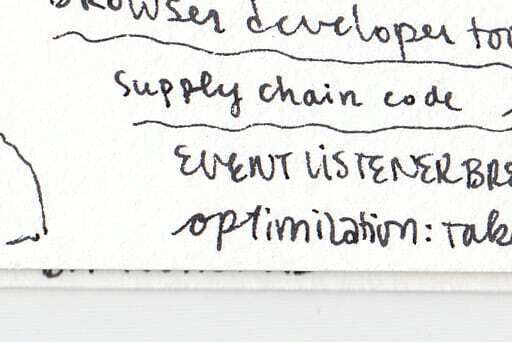 Browser developer too
supply chain code
EVENT LISTENER BRE
optimization: Tak